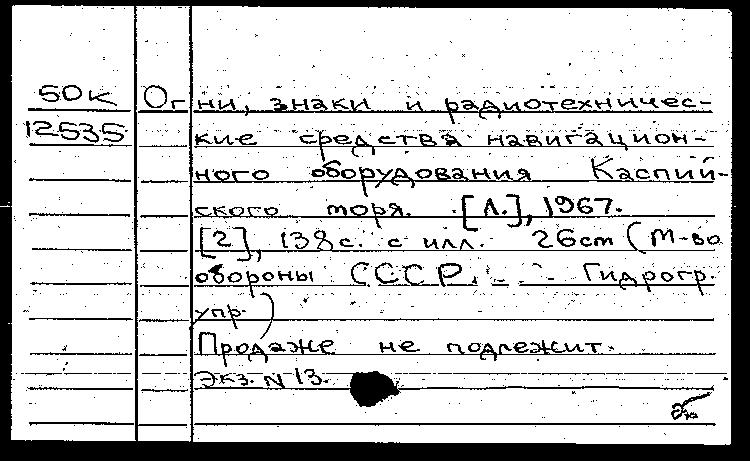 50К Огни, знаки и радиотехничес-
12535 кие средства навигацион-
ного оборудования Каспий-
ского моря. [Л.], 1967.
[2], 138 с. с илл. 26cm (М-во
обороны СССР. Гидрогр.
упр.)
Продаже не подлежит.
Экз. N 13.